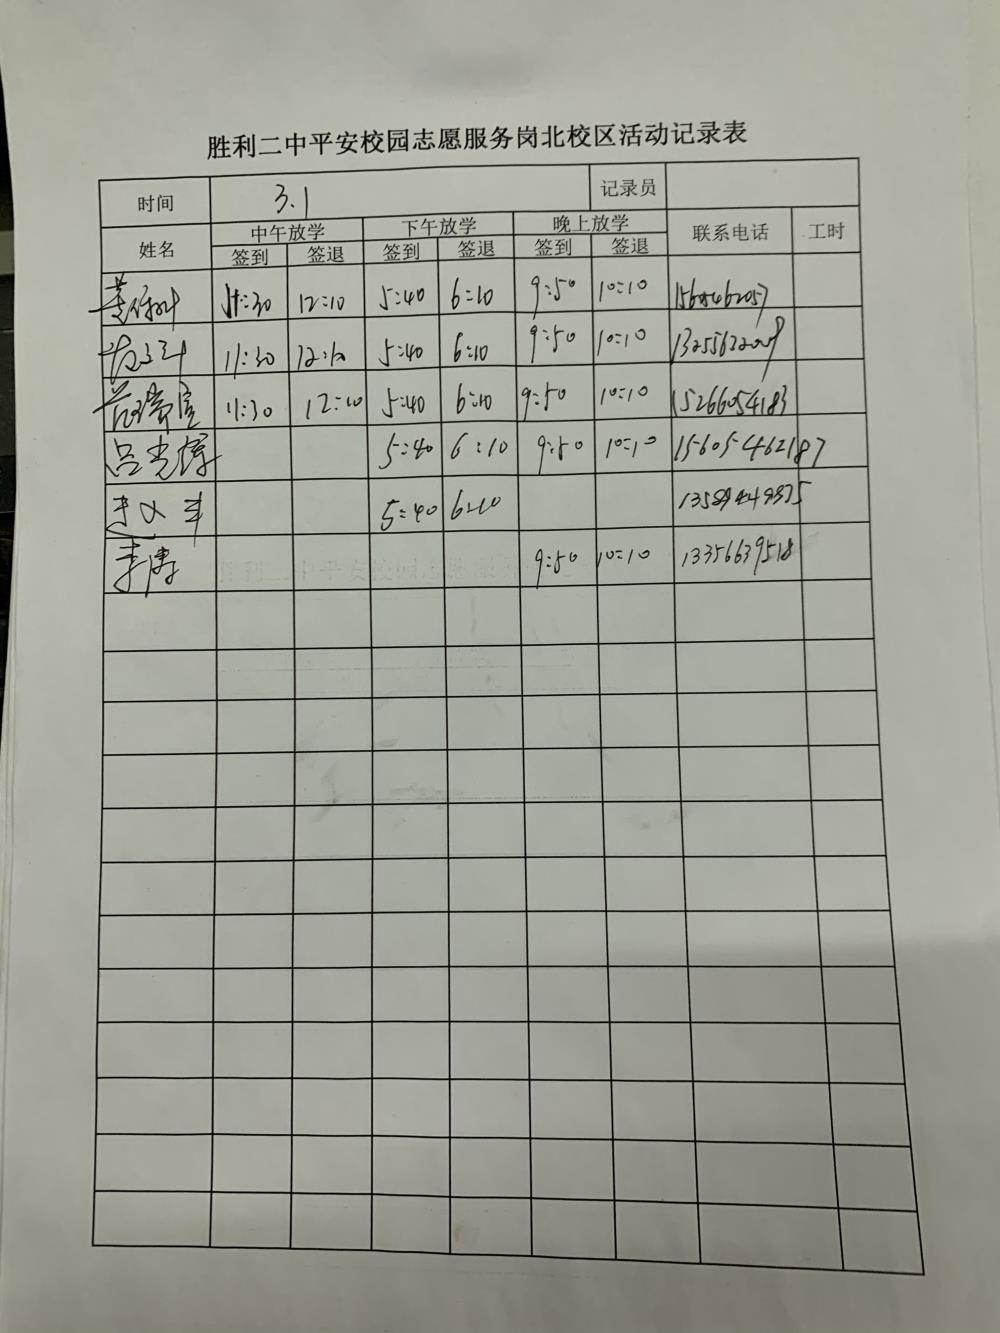 胜利二中平安校园志愿服务岗北校区活动记录表
时间 3.1 记录员
姓名 中午放学 下午放学 晚上放学 联系电话 工时
签到 签退 签到 签退 签到 签退
11:30 12:10 5:40 6:10 9:50 10:10
11:30 12:10 5:40 6:10 9:50 10:10
11:30 12:10 5:40 6:10 9:50 10:10 15266054183
吕光辉 5:40 6:10 9:50 10:10 15605462187
5:40 6:10
李涛 9:50 10:10 13356639518